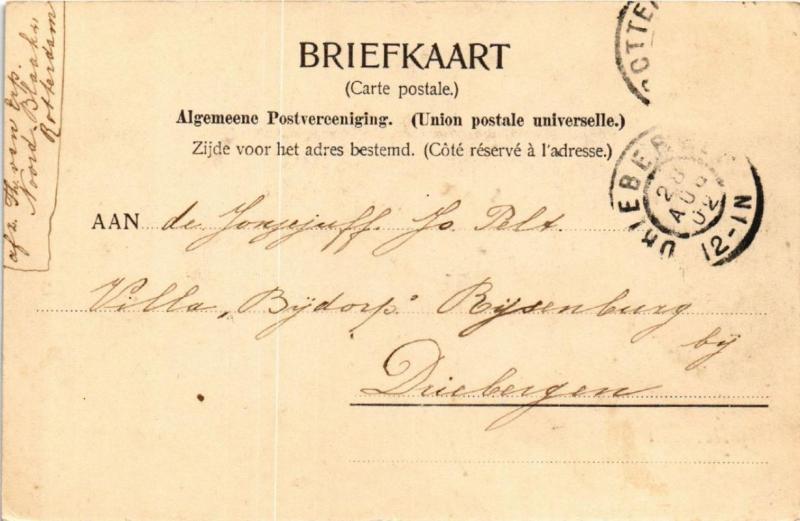 BRIEFKAART
(Carte postale.)
Algemeene Postvereeniging. (Union postale universelle.)
Zijde voor het adres bestemd. (Côté réservé à l'adresse.)
AAN de Jongejuff. Jo Pelt.
Villa „Bijdorp" Rijsenburg
bij
Driebergen
afz. van Erp.
Noord-Blaak
Rotterdam
OTTE
DRIEBERGEN
28
AUG
02
12-1N